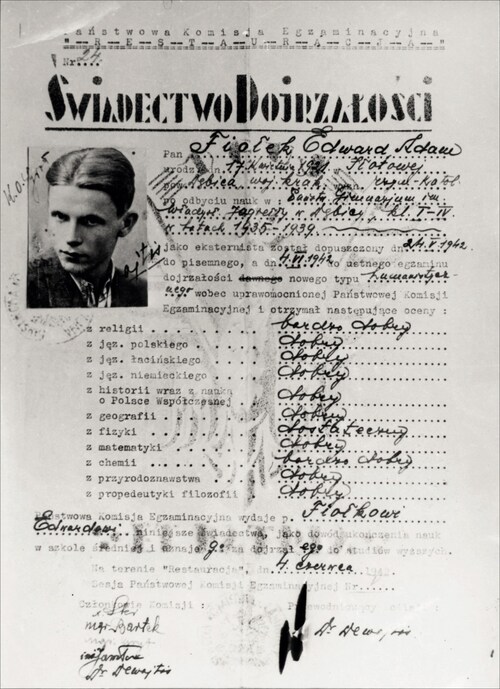 Państwowa Komisja Egzaminacyjna
"R-E-S-T-A-U-R-A-C-J-A"
Nr 24
ŚWIADECTWO DOJRZAŁOŚCI
Pan Fiołek Edward Adam
urodzona 17 kwietnia w Głotowej
pow. Dębica woj. krak. rzym-katol.
po odbyciu nauk w: Gimnazjum im.
Władysł. Jagiełły w Dębicy, kl. I-IV
w latach 1935-1939
jako eksternista został dopuszczony dn. 24.V.1942
do pisemnego, a dn. 4.VI.1942 do ustnego egzaminu
dojrzałości dawnego nowego typu humanistycz-
nego wobec uprawomocnionej Państwowej Komisji
Egzaminacyjnej i otrzymał następujące oceny:
z religii bardzo dobry
z jęz. polskiego dobry
z jęz. łacińskiego dobry
z jęz. niemieckiego dobry
z historii wraz z nauką
o Polsce Współczesnej dobry
z geografii dobry
z fizyki dostateczny
z matematyki dobry
z chemii bardzo dobry
z przyrodoznawstwa dobry
z propedeutyki filozofii dobry
Państwowa Komisja Egzaminacyjna wydaje p. Fiołkowi
Edwardowi niniejsze świadectwo, jako dowód ukończenia nauk
w szkole średniej i uznaje go za dojrzałego do studiów wyższych.
Na terenie "Restauracja", dn. 4 czerwca 1942
Sesja Państwowej Komisji Egzaminacyjnej Nr
Członkowie Komisji: Przewodniczący
mgr Bartek
Dr Dewajtis
Dr Dewajtis